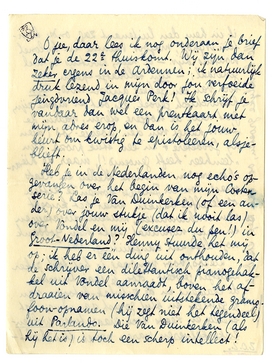 O jie, daar lees ik nog onderaan je brief
dat je de 22e thuiskomt. Wij zijn dan
zeker ergens in de Ardennen; ik natuurlijk
druk lezend in mijn door jou verfoeide
jeugdvriend Jacques Perk! Ik schrijf je
vandaar dan wel een prentkaart met
mijn adres erop, en dan is het jouw
beurt om kwistig te epistolieren, alsje-
blieft.
Heb je in de Nederlanden nog echo's op-
gevangen over het begin van mijn Coster-
serie? Las je Van Duinkerken (of een an-
der) over jouw stukje (dat ik nooit las)
over Vondel en mij (excusez du peu!) in
Groot-Nederland? Henny stuurde het mij
op; ik heb er één ding uit onthouden, dat
de schrijver een dilettantisch pianogehak-
uit Vondel aanraadt, boven het af-
draaien van misschien uitstekende gramo-
foonopnamen (hij zegt niet het tegendeel)
uit Parlando. Die Van Duinkerken (als
hij het is) is toch een scherp intellect!